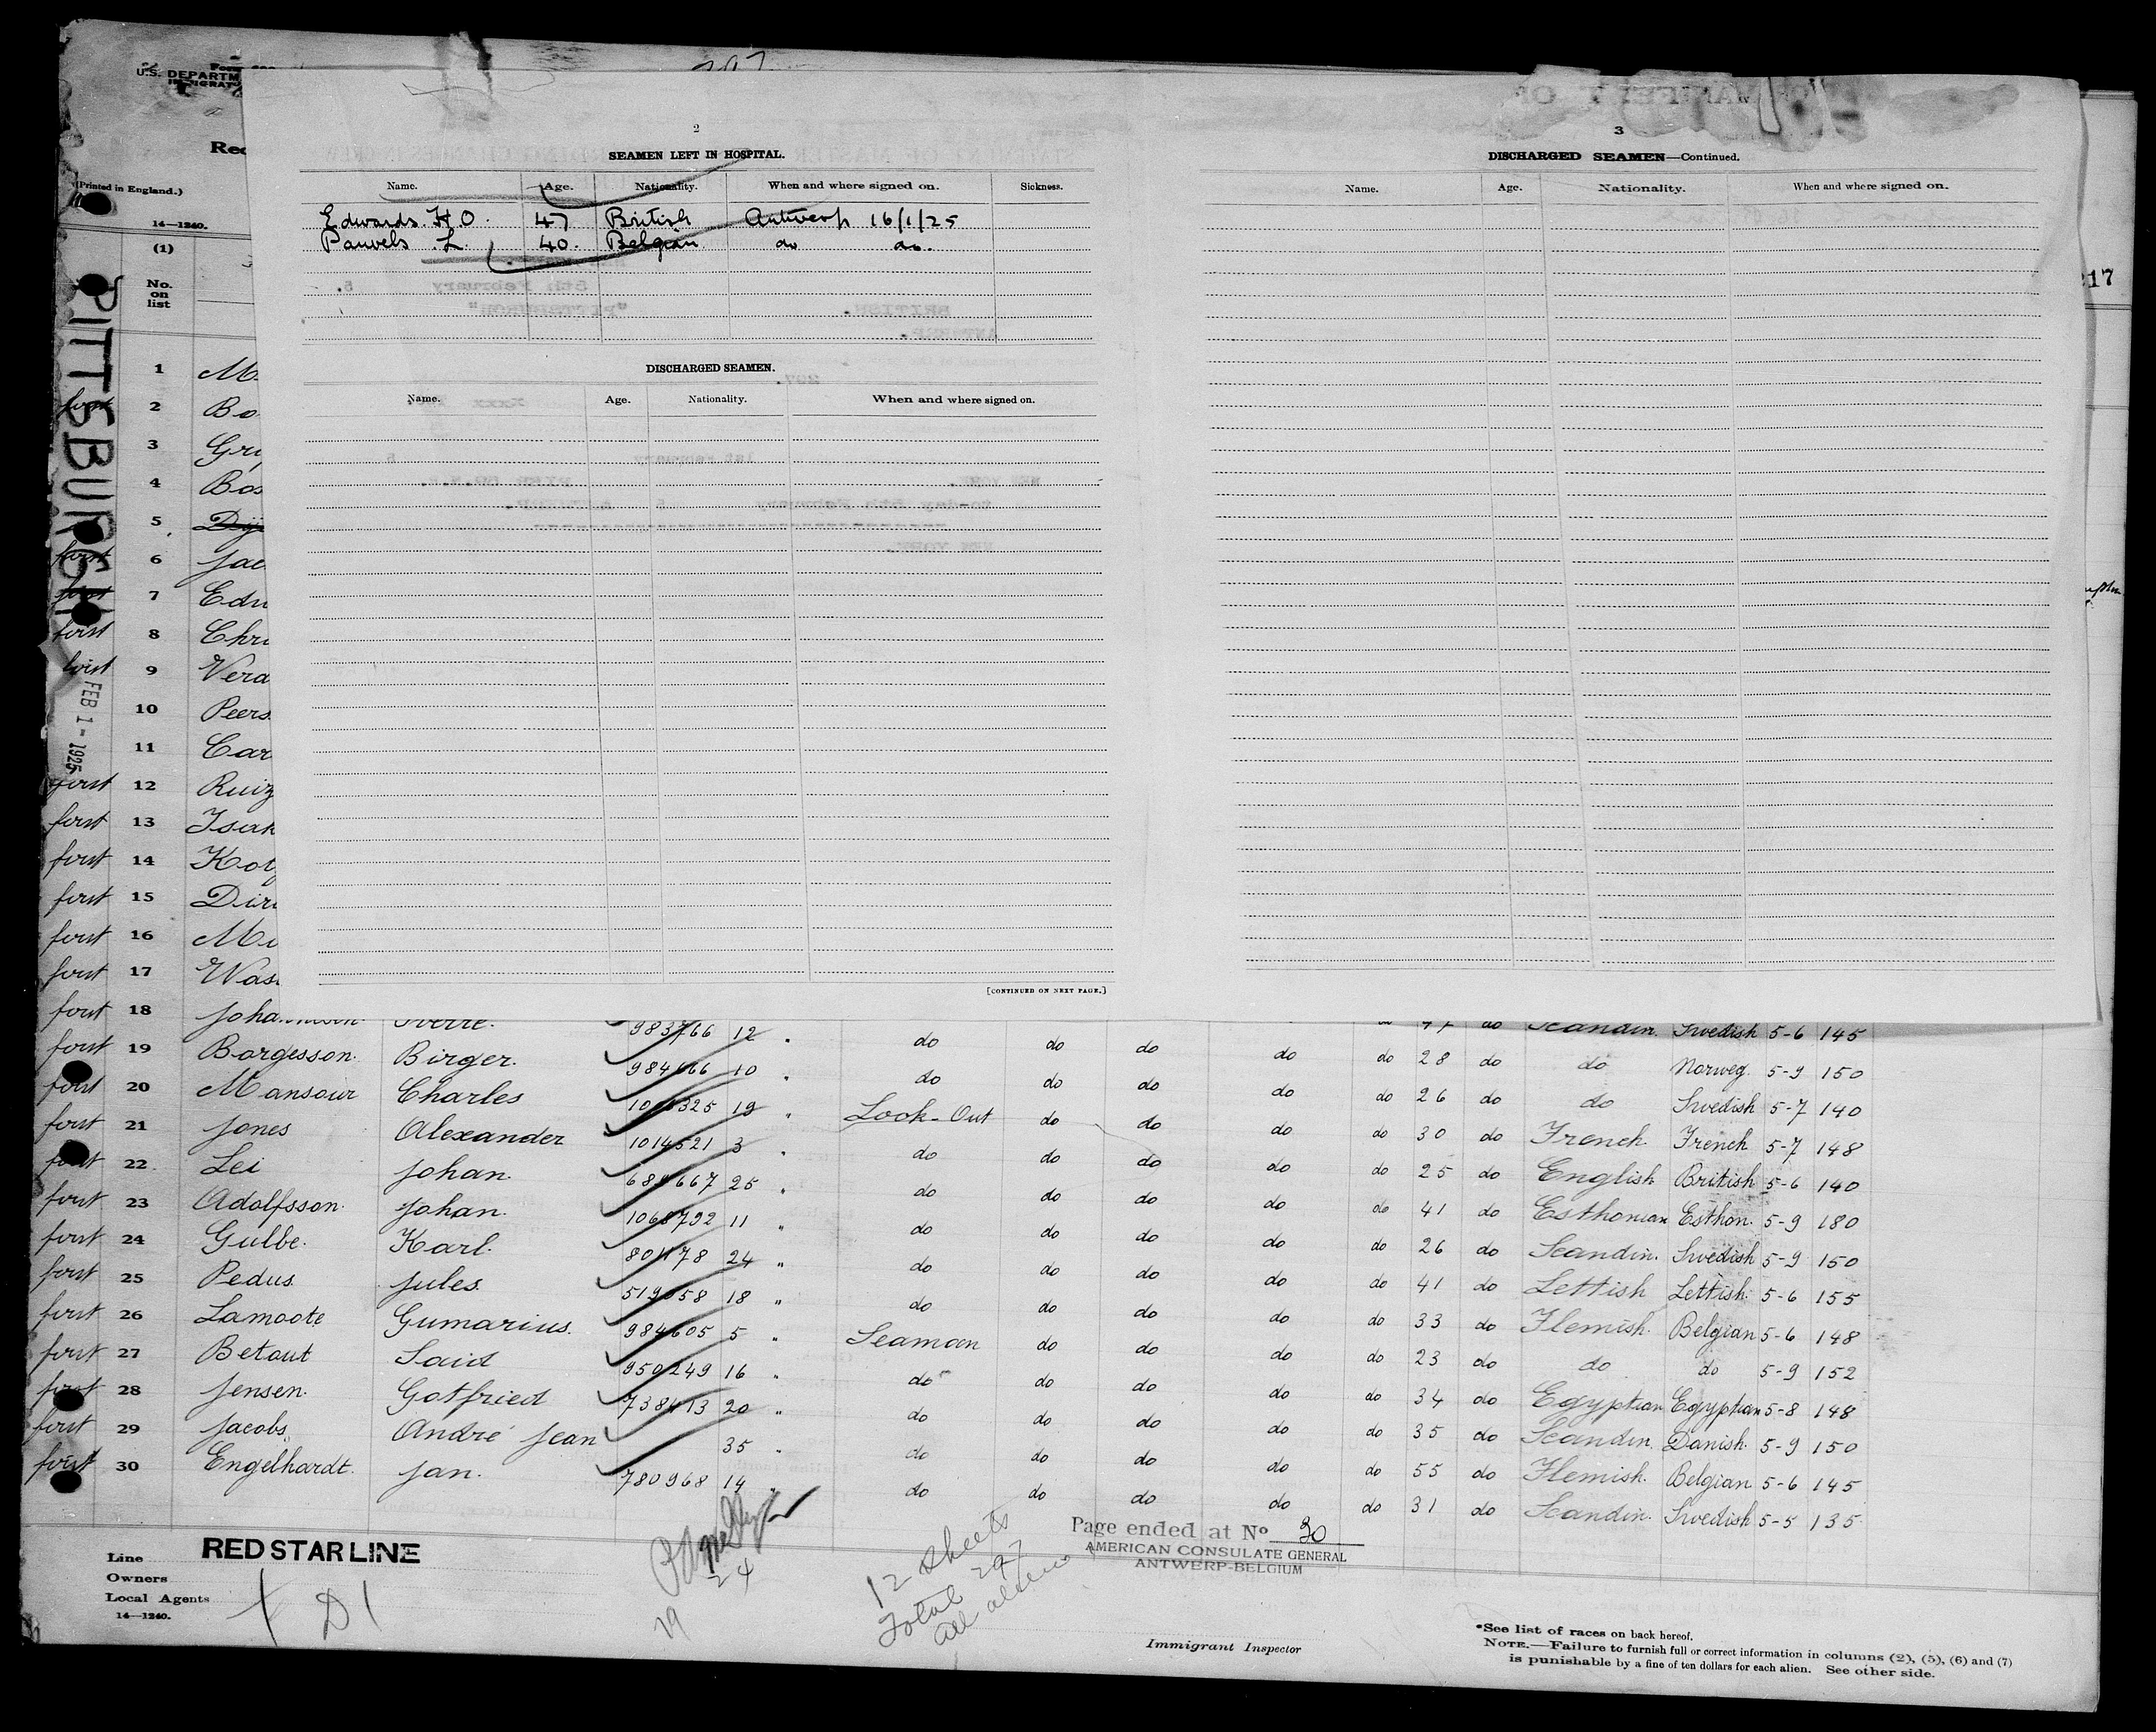 U.S. DEPARTM
(Printed in England.)
14—1240.
217
2
SEAMEN LEFT IN HOSPITAL.
Name. Age. Nationality. When and where signed on. Sickness.
Edwards H.O. 47 British Antwerp 16/1/25
Pauvels L. 40. Belgian do do.
DISCHARGED SEAMEN.
Name. Age. Nationality. When and where signed on.
[CONTINUED ON NEXT PAGE.]
3
DISCHARGED SEAMEN—Continued.
Name. Age. Nationality. When and where signed on.
PITTSBURGH
FEB 1 - 1925
(1)
No. on list
1 M
first 2 Bo
3 Gri
4 Bos
5 Dij
first 6 Jac
first 7 Edw
first 8 Chri
first 9 Vera
10 Peers
11 Car
first 12 Ruiz
first 13 Isak
first 14 Kot
first 15 Diri
first 16 Mi
first 17 Was
47 do Scandin. Swedish 5-6 145
first 18 Johannesen. Sverre. 983766 12 " do do do do do 28 do do Norweg. 5-9 150
first 19 Borgesson. Birger. 984666 10 " do do do do do 26 do do Swedish 5-7 140
first 20 Mansour Charles 1010325 19 " Look-Out do do do do 30 do French. French 5-7 148
first 21 Jones Alexander 1014521 3 " do do do do do 25 do English British 5-6 140
first 22 Lei Johan. 684667 25 " do do do do do 41 do Esthonian Esthon. 5-9 180
first 23 Adolfsson. Johan. 1068792 11 " do do do do do 26 do Scandin. Swedish 5-9 150
first 24 Gulbe. Karl. 801178 24 " do do do do do 41 do Lettish Lettish. 5-6 155
first 25 Pedus. Jules. 519058 18 " do do do do do 33 do Flemish. Belgian 5-6 148
first 26 Lamoote Gumarius. 984605 5 " Seaman do do do do 23 do do do 5-9 152
first 27 Betaut Said 950249 16 " do do do do do 34 do Egyptian Egyptian 5-8 148
first 28 Jensen. Gotfried 738413 20 " do do do do do 35 do Scandin. Danish. 5-9 150
first 29 Jacobs. André Jean 35 " do do do do do 55 do Flemish. Belgian 5-6 145
first 30 Engelhardt. Jan. 780968 14 " do do do do do 31 do Scandin. Swedish 5-5 135
Line RED STAR LINE
Owners
Local Agents
14—1240.
D1
24
12 Sheets
Total 297
all aliens
Page ended at No 30
AMERICAN CONSULATE GENERAL
ANTWERP-BELGIUM
Immigrant Inspector
*See list of races on back hereof.
NOTE.—Failure to furnish full or correct information in columns (2), (5), (6) and (7)
is punishable by a fine of ten dollars for each alien. See other side.